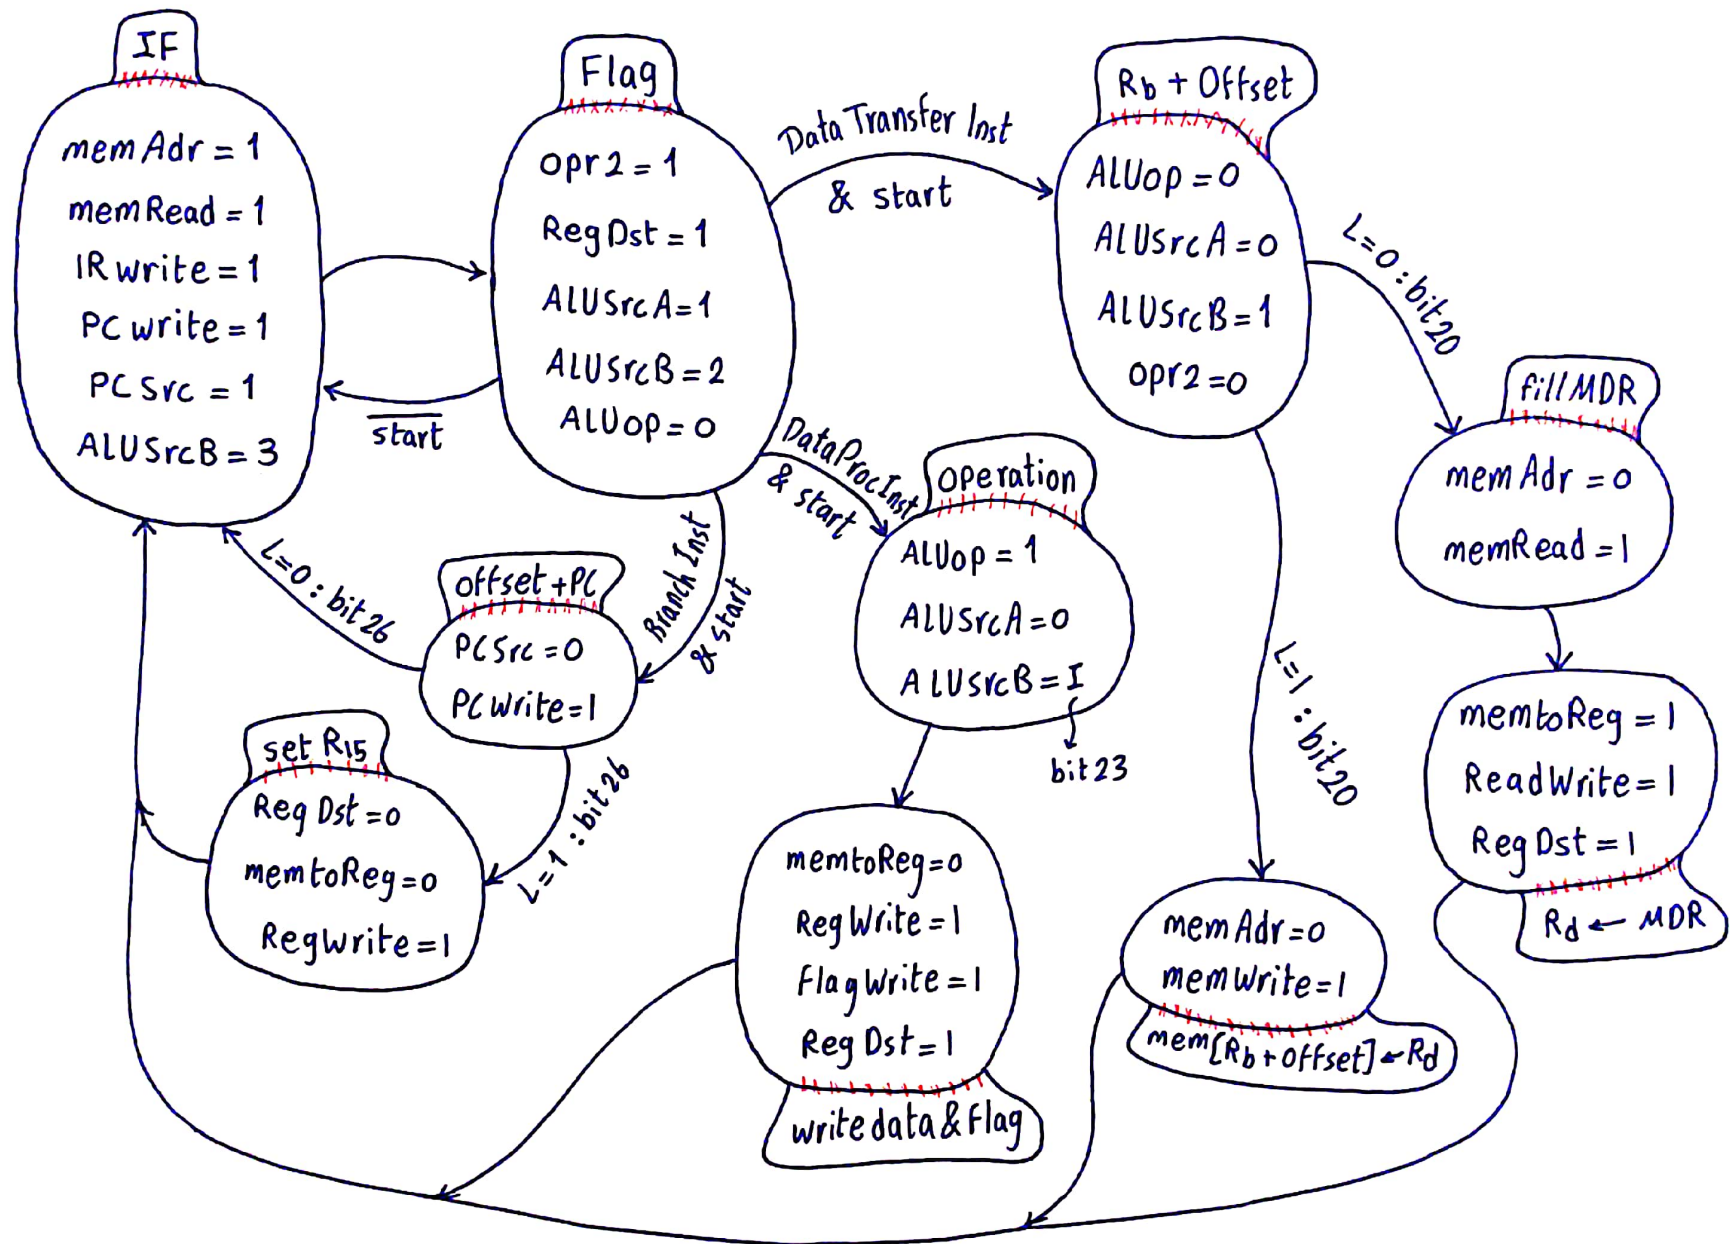 IF
memAdr = 1
memRead = 1
IRwrite = 1
PCwrite = 1
PCSrc = 1
ALUSrcB = 3
Flag
opr2 = 1
RegDst = 1
ALUSrcA = 1
ALUSrcB = 2
ALUop = 0
start
Data Transfer Inst
& start
Rb + Offset
ALUop = 0
ALUSrcA = 0
ALUSrcB = 1
opr2 = 0
L=0 : bit20
fillMDR
memAdr = 0
memRead = 1
memtoReg = 1
ReadWrite = 1
RegDst = 1
Rd ← MDR
L=1 : bit20
memAdr = 0
memWrite = 1
mem[Rb + offset] ← Rd
DataProcInst
& start
operation
ALUop = 1
ALUSrcA = 0
ALUSrcB = I
bit23
memtoReg = 0
RegWrite = 1
FlagWrite = 1
RegDst = 1
write data & Flag
Branch Inst
& start
offset + PC
PCSrc = 0
PCwrite = 1
L=0 : bit26
L=1 : bit26
set R15
RegDst = 0
memtoReg = 0
Regwrite = 1